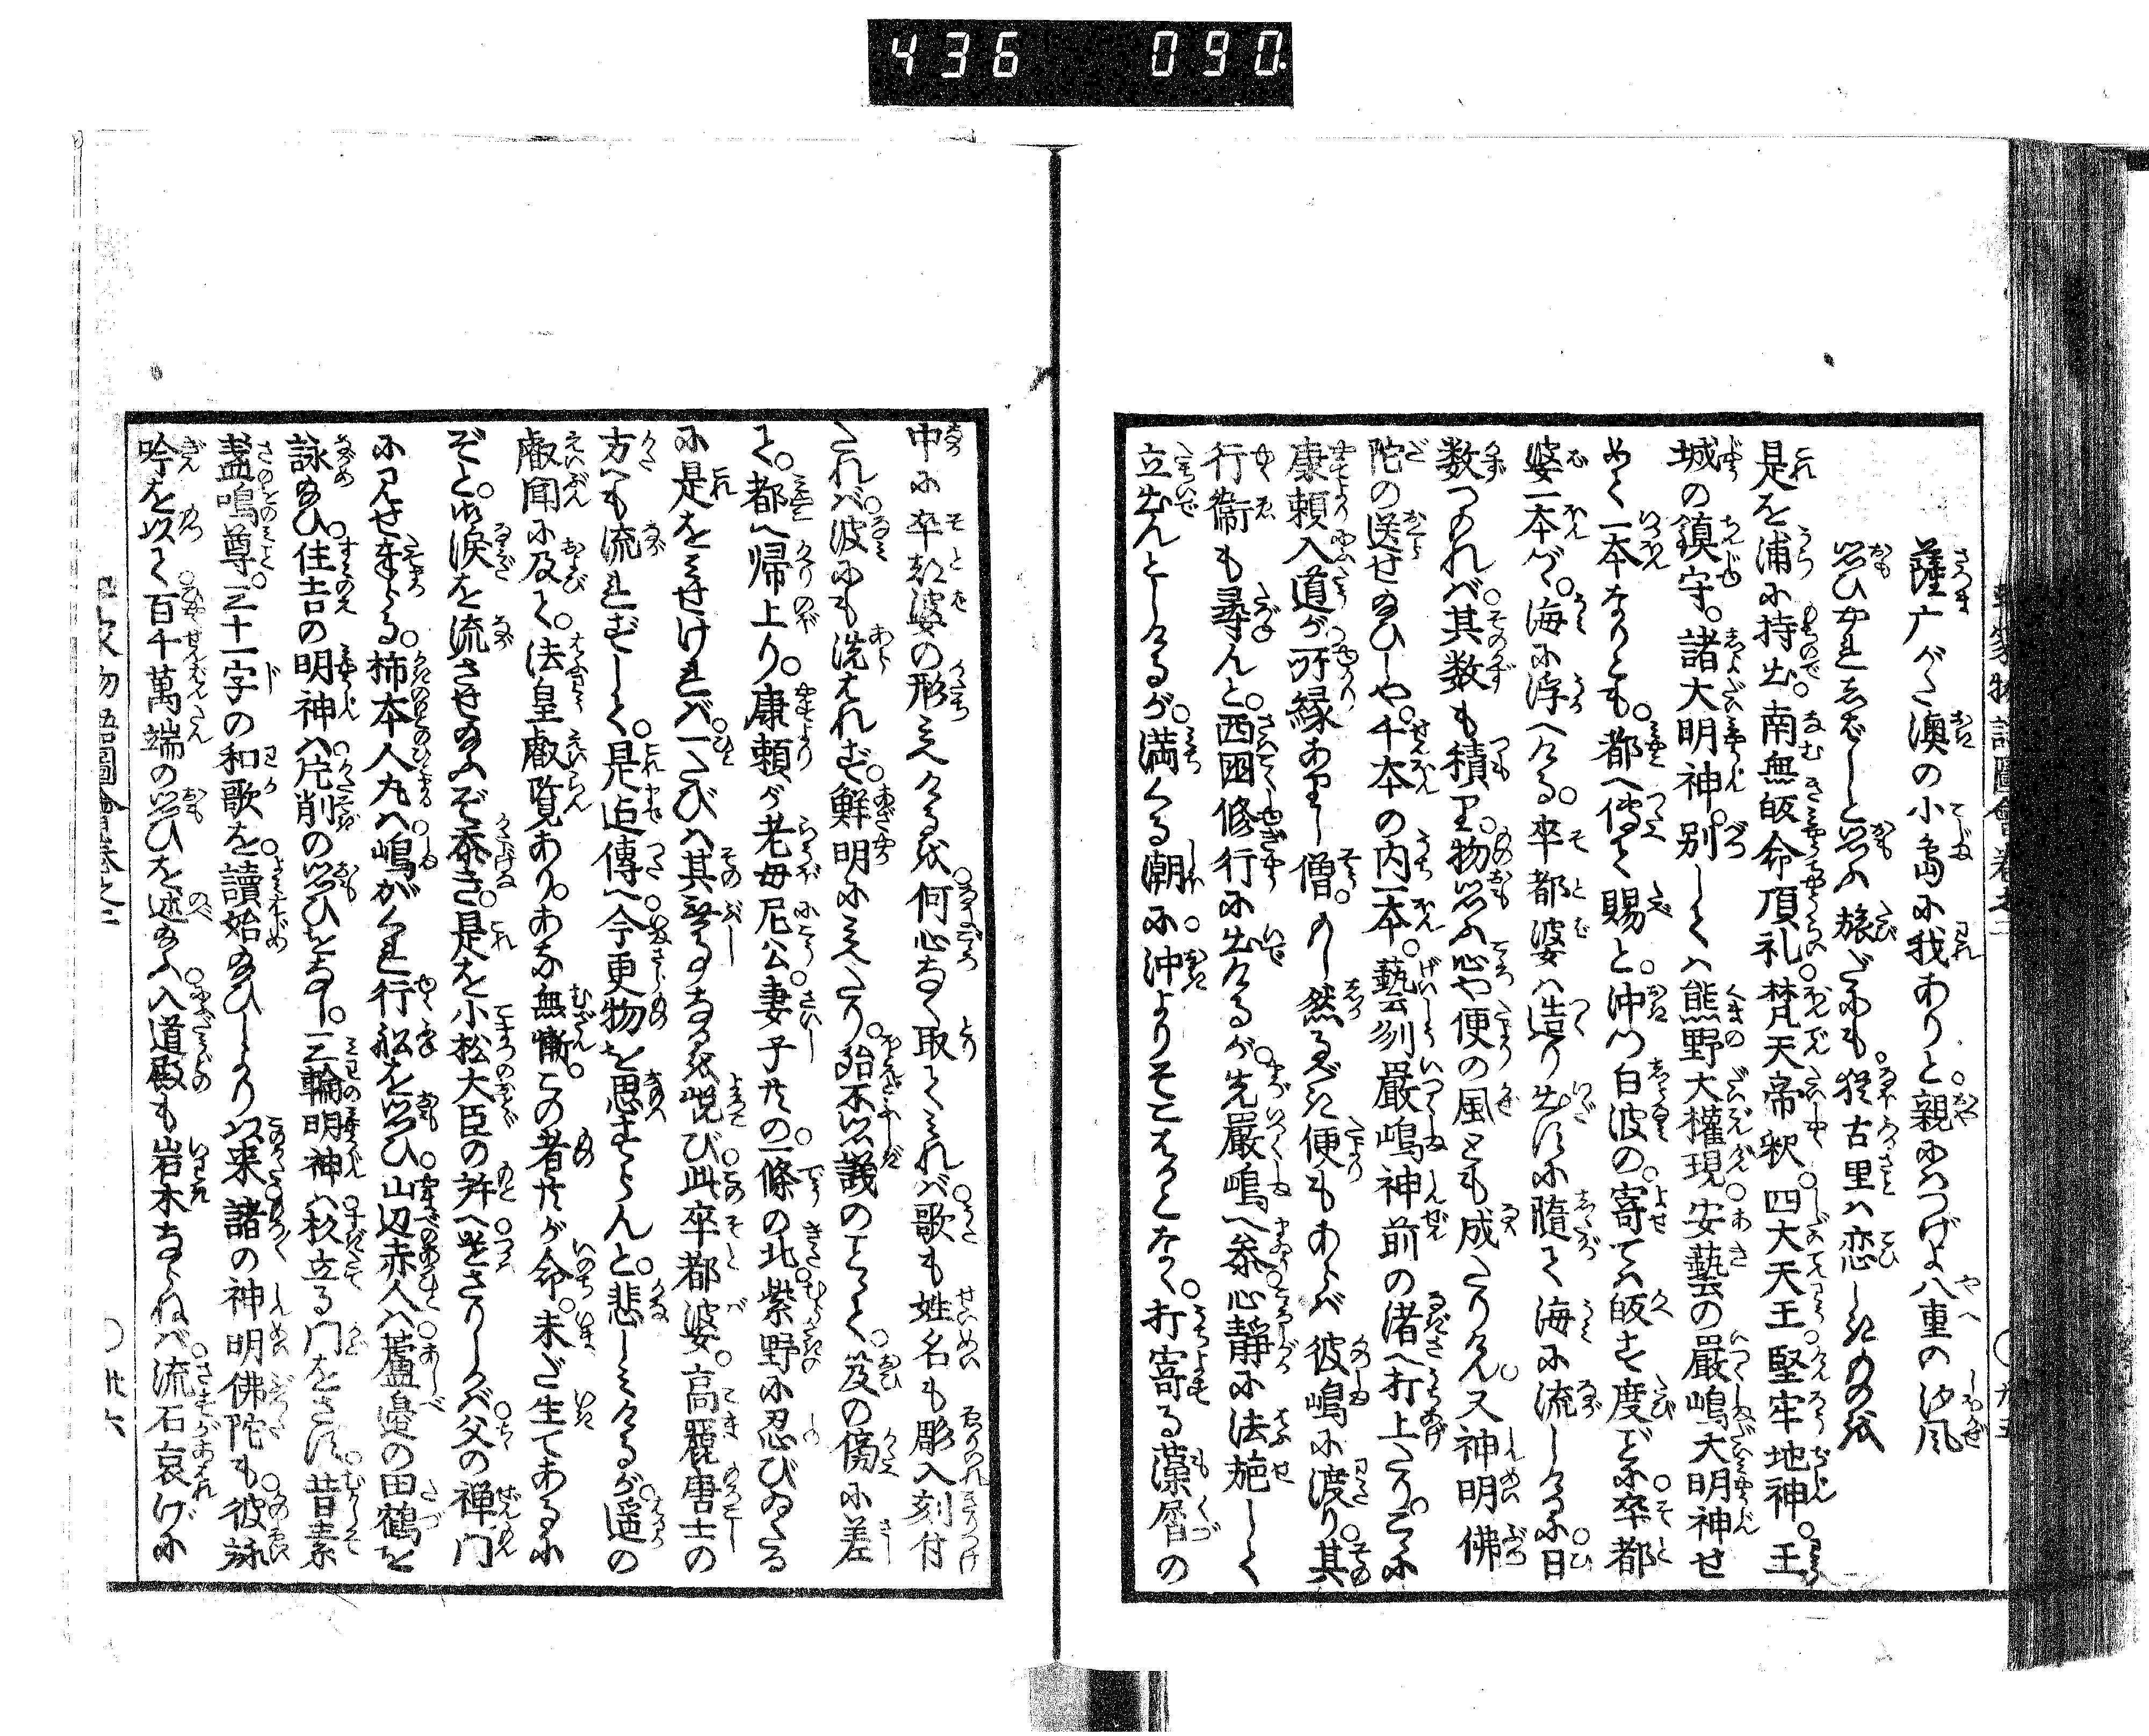 436 090
薩广がた澳の小島に我ありと親にはつげよ八重の汐風
思ひやれしばしと思ふ旅だにも猶古里は恋しきものを
是を浦に持出。南無皈命頂礼梵天帝釈。四大天王堅牢地神。王
城の鎮守。諸大明神。別しては熊野大權現安藝の嚴嶋大明神せ
めて一本なりとも都へ傳て賜と。沖つ白波の寄ては皈る度ごに卒都
婆一本づゝ。海に浮へける。卒都婆は造り出すに隨て海に流しけるに日
数つもれば其数も積里。物思ふ心や便の風とも成たりけん又神明佛
陀の送せ給ひしや千本の内一本。藝刕嚴嶋神前の渚へ打上たり。こゝに
康頼入道が所縁ありし僧のし然るべき便もあらば彼嶋に渡り其
行衛も尋んと。西國修行に出けるが先嚴嶋へ参心静に法施して
立出んとしけるが満くる潮に沖よりそこはかとなく。打寄る藻屑の
中に卒都婆の形みへけるを何心なく取てみれば歌も姓名も彫入刻付
たれば波にも洗はれず鮮明にみへたり。殆不思議のことて笈の傍に差
て。都へ帰上り。康頼が老母尼公妻子共の一條の北紫野に忍びゐたる
に是をみせければ一たびは其無事なるを悦び此卒都婆。高麗唐土の
方へも流れずして。是迄傳へ今更物を思はすらんと。悲しみけるが遥の
叡聞に及て。法皇叡覧あり。あな無慚。この者共が命。未だ生てあるに
ぞと。御涙を流させ給ふぞ忝き。是を小松大臣の許へ送さりしかば父の禅門
にみせ奉る。柿本人丸は嶋がくれ行船を思ひ山辺赤人は蘆邉の田鶴を
詠給ひ住吉の明神は片削の思ひをなし。三輪明神は杉立る門をさす昔素
盞嗚尊三十一字の和歌を讀始給ひしより以来諸の神明佛陀も彼詠
吟を以て百千萬端の思ひを述給ふ入道殿も岩木ならねば流石哀げに